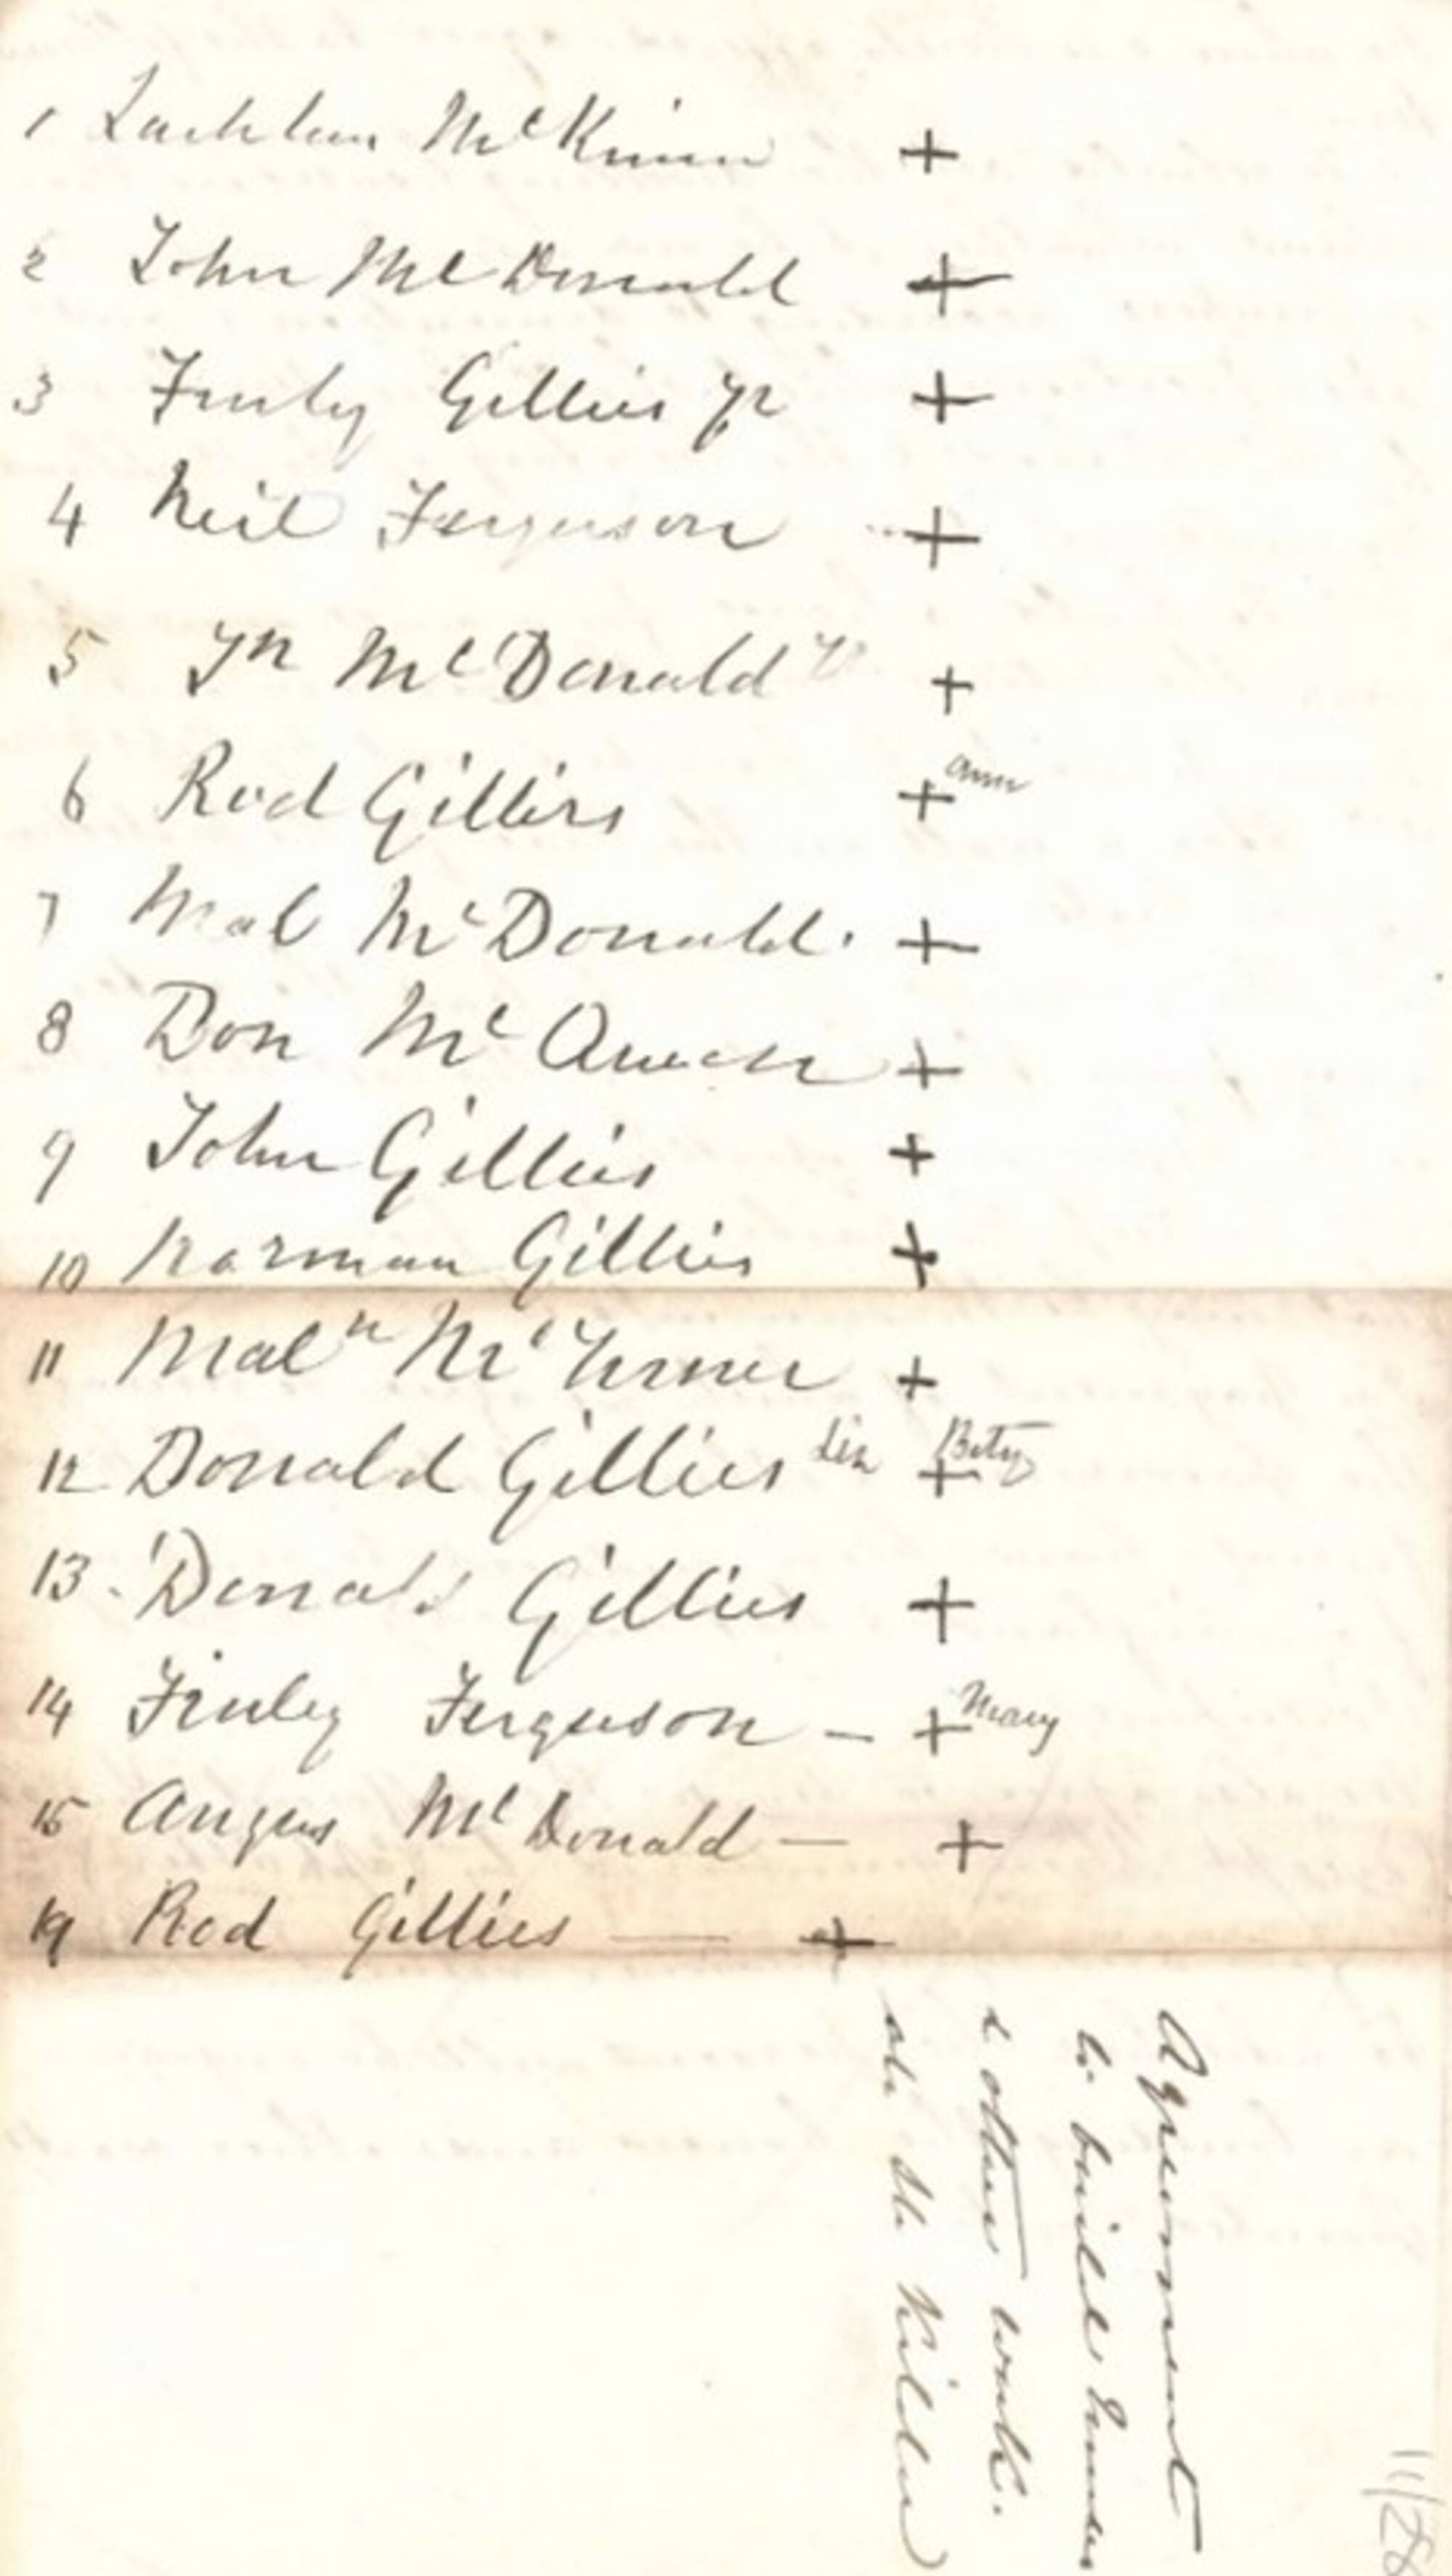 1 Lachlan McKinnon +
2 John McDonald +
3 Finlay Gillies Jr +
4 Neil Ferguson +
5 Jn McDonald +
6 Rod Gillies + Ann
7 Mal McDonald +
8 Don McQueen +
9 John Gillies +
10 Norman Gillies +
11 Maln Mc +
12 Donald Gillies + Betsy
13. Donald Gillies +
14 Finlay Ferguson - + Mary
15 Angus McDonald - +
19 Rod Gillies - +
Agreement
to build
& other work.
at St Kilda
11/28